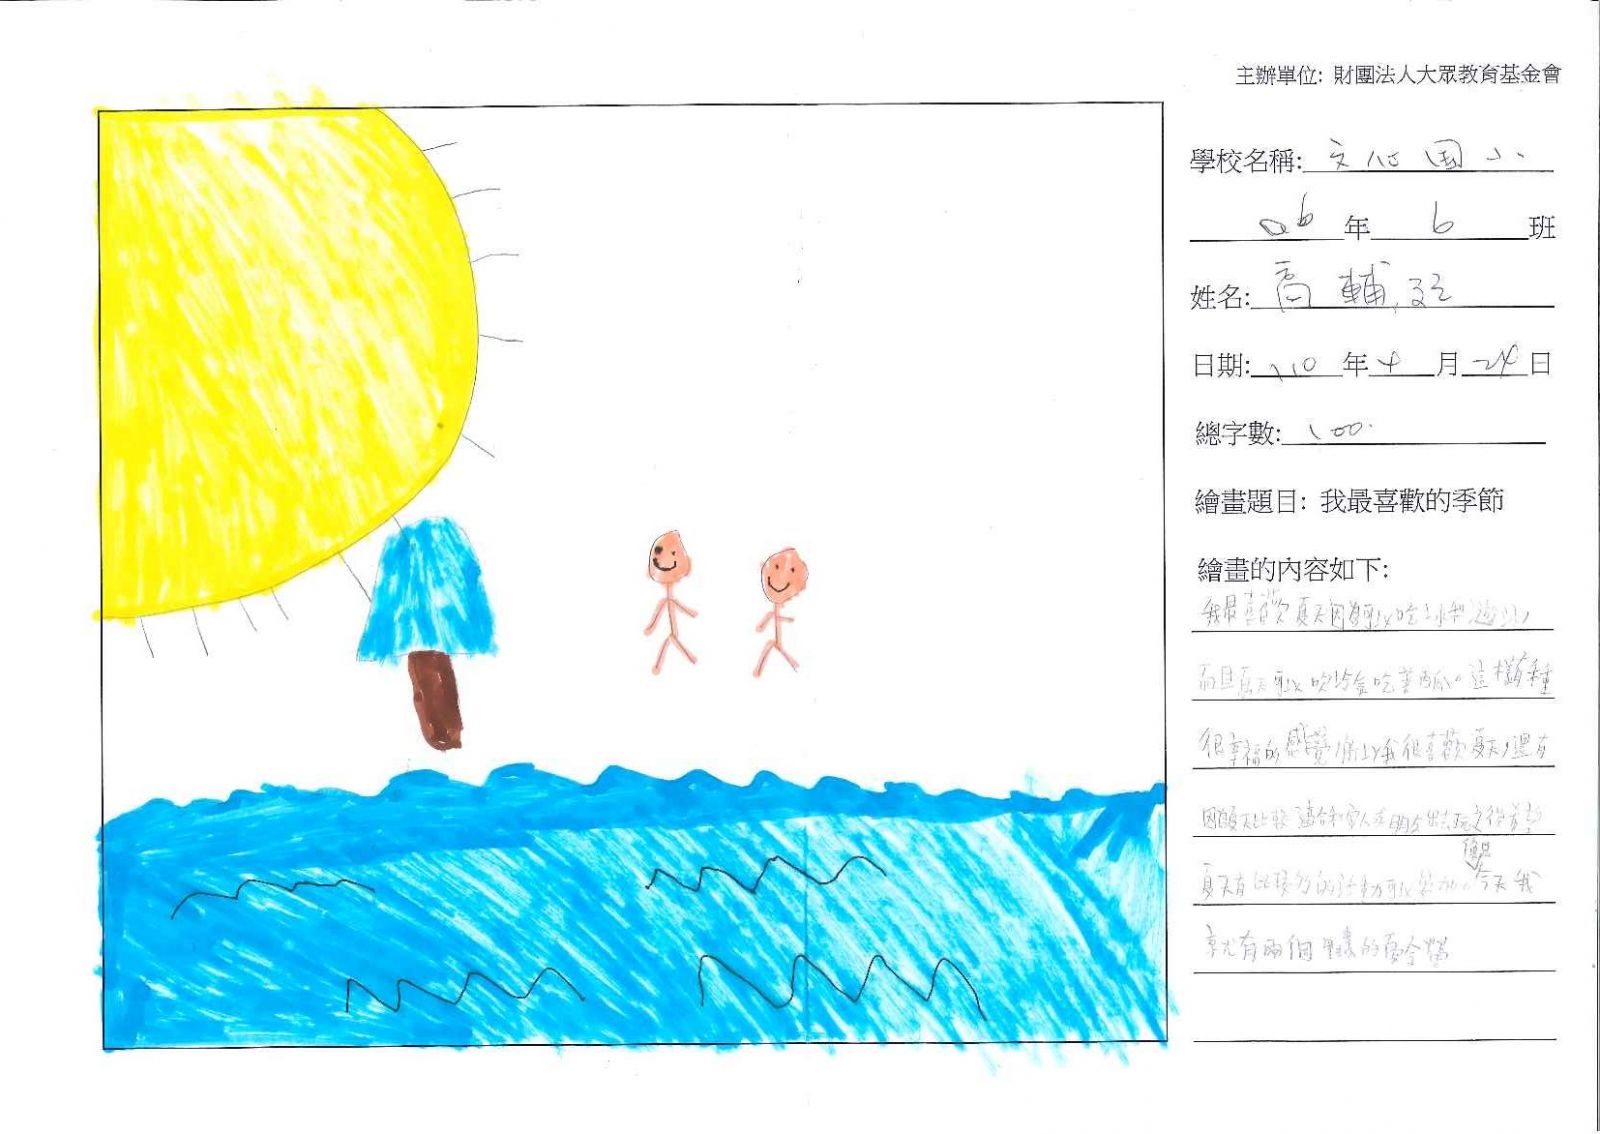 主辦單位: 財團法人大眾教育基金會
學校名稱: 文化国小
6 年 6 班
姓名: 高輔
日期: 110 年 4 月 24 日
總字數: 100
繪畫題目: 我最喜歡的季節
繪畫的內容如下:
我最喜歡夏天因為可以吃冰和
而且夏天可以吹冷氣吃著西瓜。這樣有種
很幸福的感覺所以我很喜歡夏天，還有
因為夏天比較適合和家人出去玩
夏天有比較多的活動可以參加。像是今天我
就有兩個的夏令營